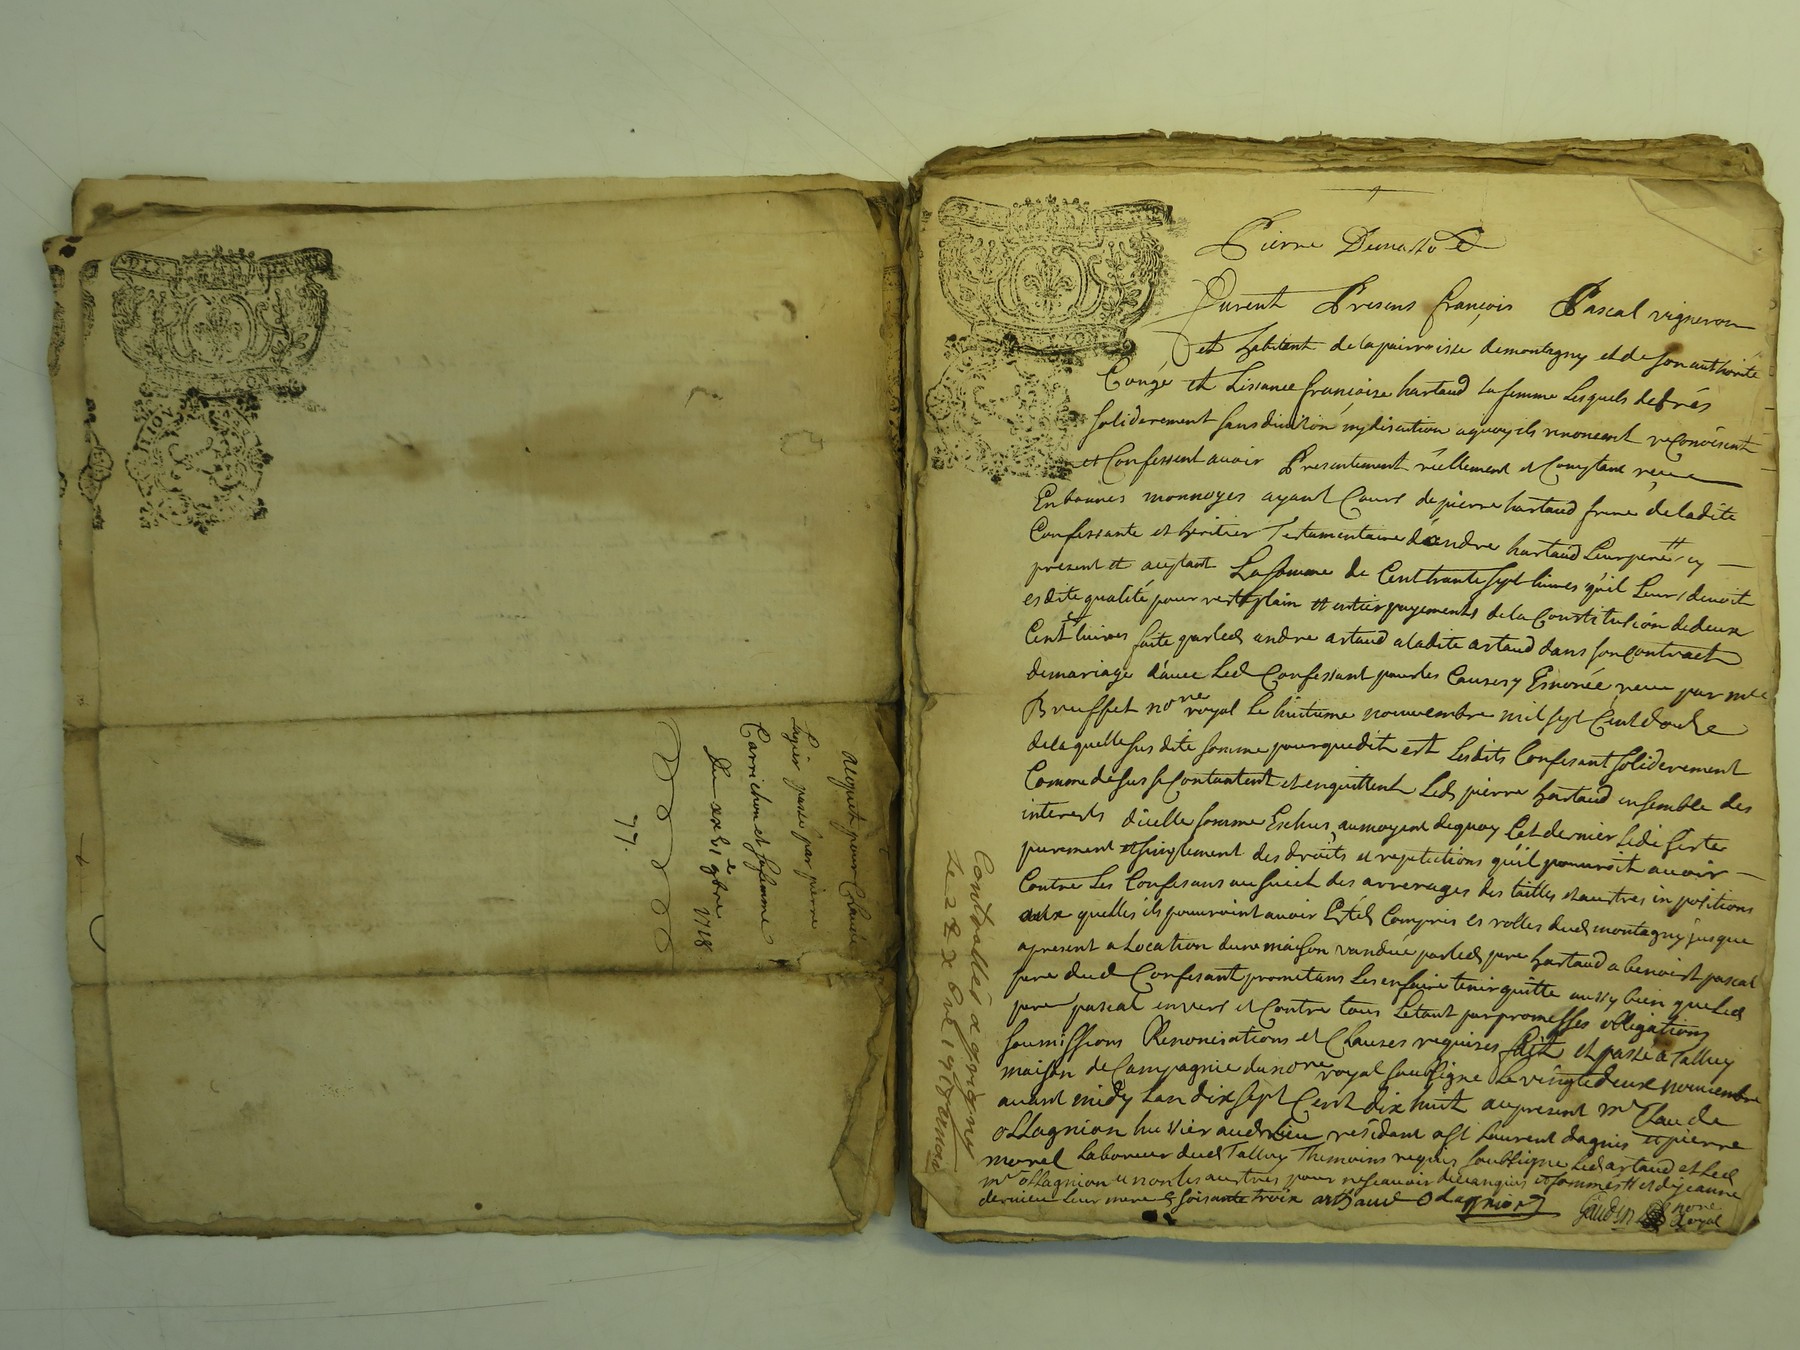 acquit pour Claude
Lagier passé par pierre
Carrichon et sa femme
Du xxVI e 9bre 1718
77.
LION
Pierre
furent Presens françois Pascal vigneron
et habitant de la pairroisse de montagny et de son authorité
Congé et Lissance françoise hartaud sa femme Lesquels de
soliderement sans division ny discution a quoy ils renoncent reConoisent
et Confessent avoir Presentement réellement et Comptant reçu
En bonnes monnoyes ayant Cours de pierre hartaud frere de ladite
Confessante et héritier Testamentaire d'andre hartaud Leur pere icy
present et aceptant La somme de Cent trante sept livres qu'il Leur devoit
es dite qualité pour reste plain et entier payements de la Constitution de deux
Cent livres faite par led andre artaud a ladite artaud dans son contract
de mariage d'avec Led Confessant pour les Causes y Enonée reçu par mtre
Breuffet nore royal Le huitiême nouvembre mil sept Cent douze
de la quelle susdite somme pour que dit est Lesdits Confesant soliderement
Comme desus se Contantent et en quittent Led pierre hartaud ensemble des
interests d'icelle somme Eschus, au moyent de quoy Cet dernier se désiste
purement et simplement des droits et repetictions qu'il pouvroit avoir
Contre Les Confesans au suiet des arrerages des tailles et austres in positions
aux quelles ils pouvroint avoir Estés Compris es rolles dud montagny jusque
apresent a Location dune maison vandüe par led pere hartaud a benoist pascal
pere dud Confesant prometans Les en faire tenir quitte aussy bien que Led
pere pascal envers et Contre tous Letout par promesses obligations
soumissions Renonciations et Clauses requises fait et passé a Talluy
maison de Campagnie du nore royal soussigne Le vingt deux nouvembre
avant midy Lan dix sept Cent dix huit au present mr Claude
ollagnion hussier aud Lieu résidant Laurent dagnis et pierre
morel Laboreur dud Talluy Themoins requis soussigne Led artaud et Led
mr ollagnion et non les austres pour ne scavoir de enquis et sommés et
dernieu Leur mere soisante troix arthaud Olagnion
Gaudin nore Royal
Contrallé a grigny
Le 22 X bre 1718